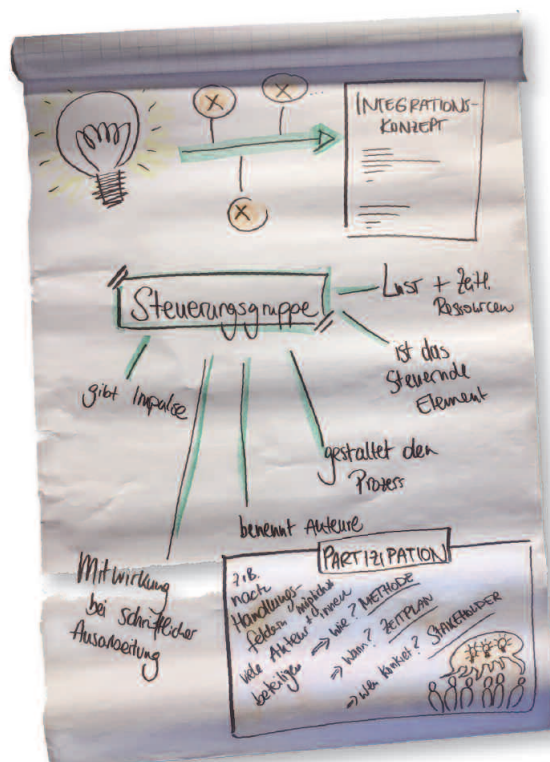 X
X
...
X
INTEGRATIONS-
KONZEPT
Steuerungsgruppe
Lust + Zeitl.
Ressourcen
ist das
Steuernde
Element
gestaltet den
Prozess
benennt Akteure
gibt Impulse
Mitwirkung
bei schriftlicher
Ausarbeitung
PARTIZIPATION
z.B.
nach
Handlungs-
feldern möglichst
viele Akteur*innen
beteiligen
⇒ wie? METHODE
⇒ wann? ZEITPLAN
⇒ wen konkret? STAKEHOLDER